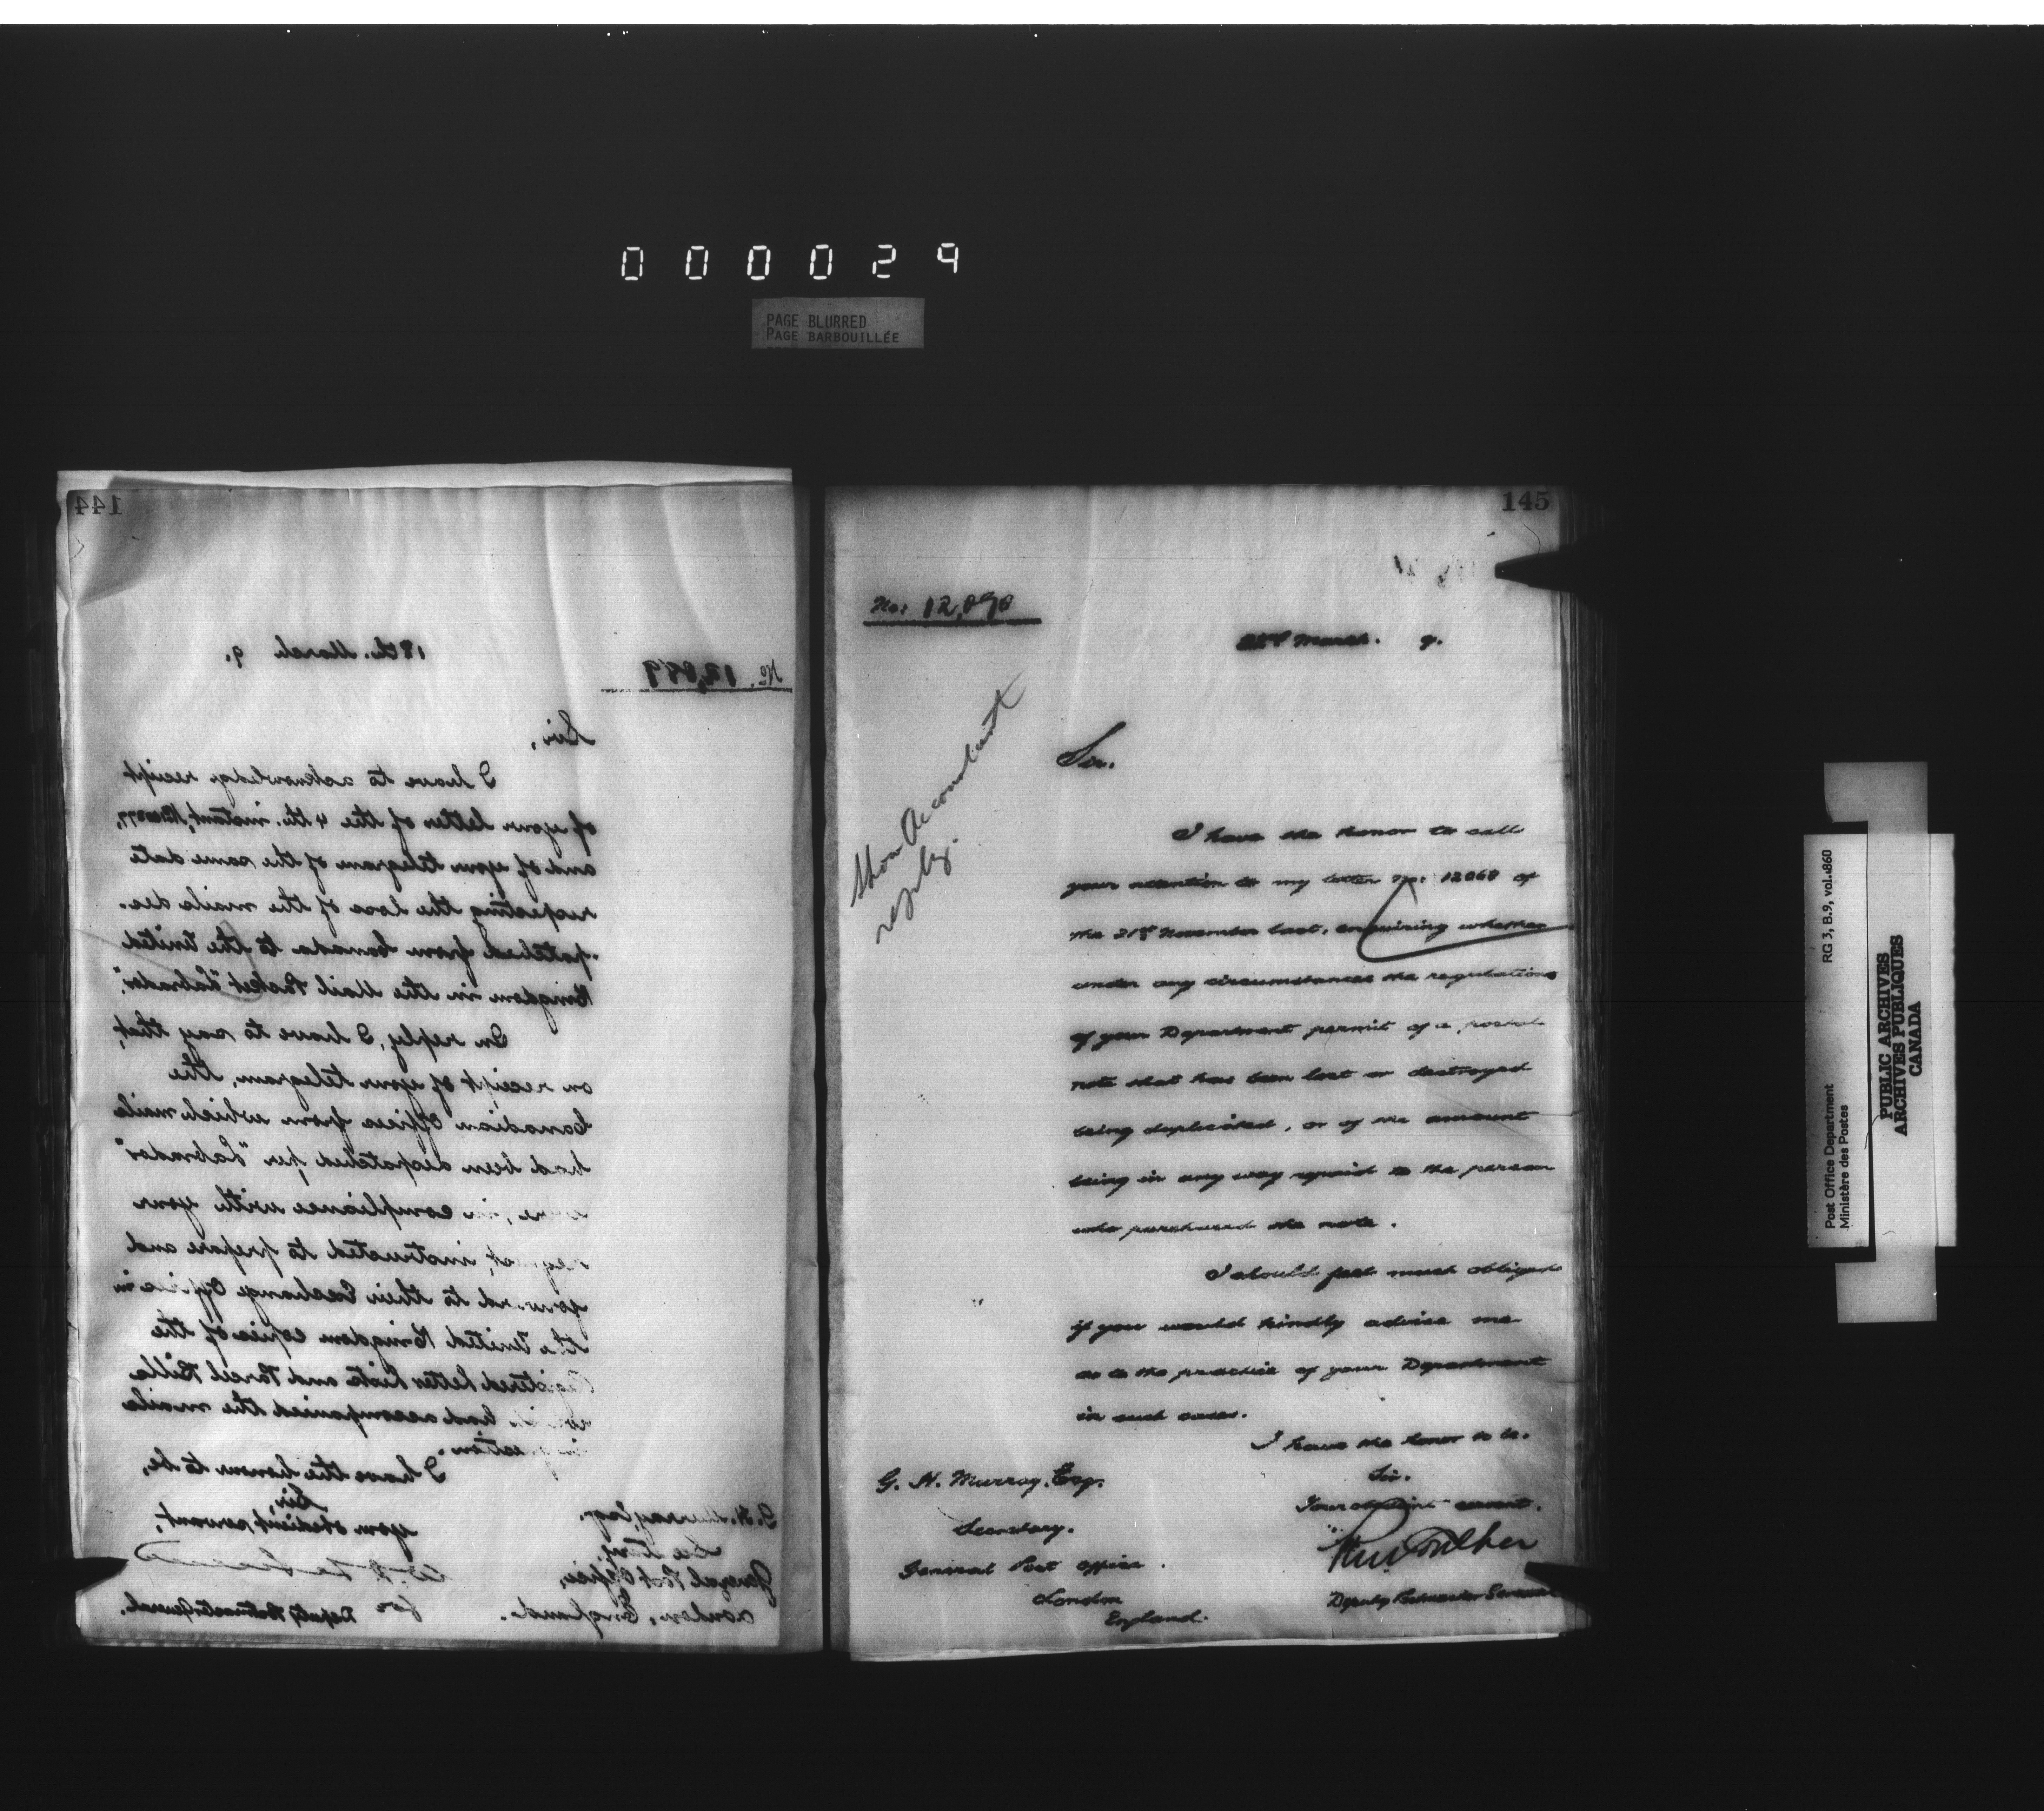 000029
PAGE BLURRED
PAGE BARBOUILLÉE
144
18th. March 9.
No. 12,889
Sir,
I have to acknowledge receipt
of your letter of the 4th. instant,
and of your telegram of the same date
respecting the loss of the mails des-
patched from Canada to the United
Kingdom in the Mail Packet "Labrador".
In reply, I have to say that,
on receipt of your telegram, the
Canadian Offices from which mails
had been despatched per "Labrador"
were, in compliance with your
request, instructed to prepare and
forward to their Exchange Offices in
the United Kingdom copies of the
Registered Letter Lists and Parcel Bills
which had accompanied the mails
in question.
I have the honour to be,
Sir,
your obedient servant,
for Deputy Postmaster General.
G. H. Murray, Esq.
Secretary,
General Post Office,
London, England.
145
No: 12,890
March. 9.
Show Accountant
reply.
Sir.
I have the honor to call
your attention to my letter No: 12068 of
the 21st November last, enquiring whether
under any circumstances the regulations
of your Department permit of a postal
note that has been lost or destroyed
being duplicated, or of the amount
being in any way repaid to the person
who purchased the note.
I should feel much obliged
if you would kindly advise me
as to the practice of your Department
in such cases.
I have the honor to be.
Sir.
Your obedient servant.
Deputy Postmaster General
G. H. Murray. Esq.
Secretary.
General Post Office.
London
England.
RG 3, B.9, vol. 860
Post Office Department
Ministère des Postes
PUBLIC ARCHIVES
ARCHIVES PUBLIQUES
CANADA